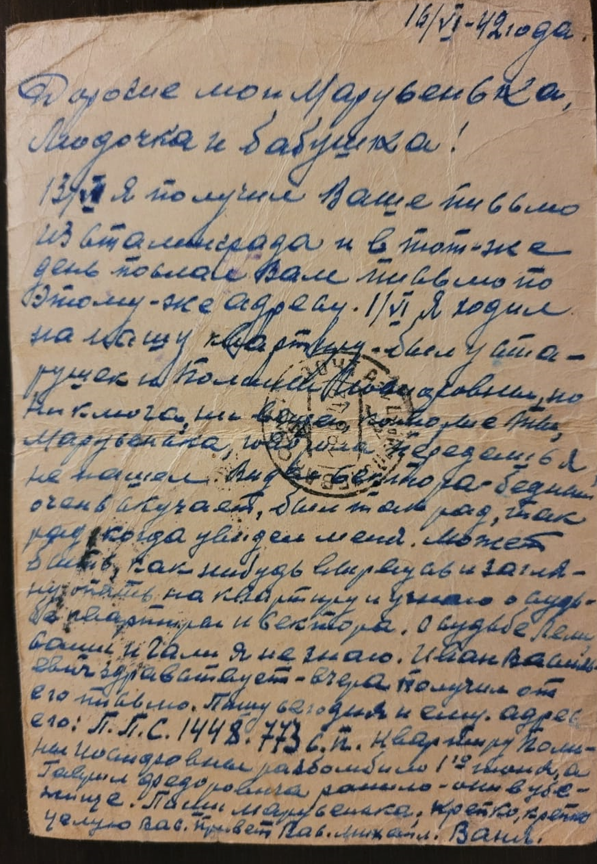 16/VI-42 года.
Дорогие мои Марусенька,
Людочка и бабушка!
13/VI Я получил Ваше письмо
из Сталинграда и в тот-же
день послал Вам письмо по
этому-же адресу. 1/VI Я ходил
на нашу квартиру-был у ста-
рушек и Полины но
ни ключа, ни
Марусенька, передела Я
не нашел Вектора-бедный
очень скучает, был там рад, так
рад, когда увидел меня. Может
быть, как нибудь вырвусь и загля-
ну опять на квартиру и узнаю о судь-
бе квартиры и Вектора. О судьбе
и Гали я не знаю. Иван Василь-
евич здравствует-вчера получил от
его письмо. Пишу сегодня и ему. адрес
его: П.П.С. 1448. 773 с.п. Квартиру Поли-
ны Иосифовны разбомбило 1го июня, а
Гаврил Федоровича ранило-они в убе-
жище. Пиши Марусенька. Крепко, крепко
целую Вас. Привет Вам. Михаил. Ваня.